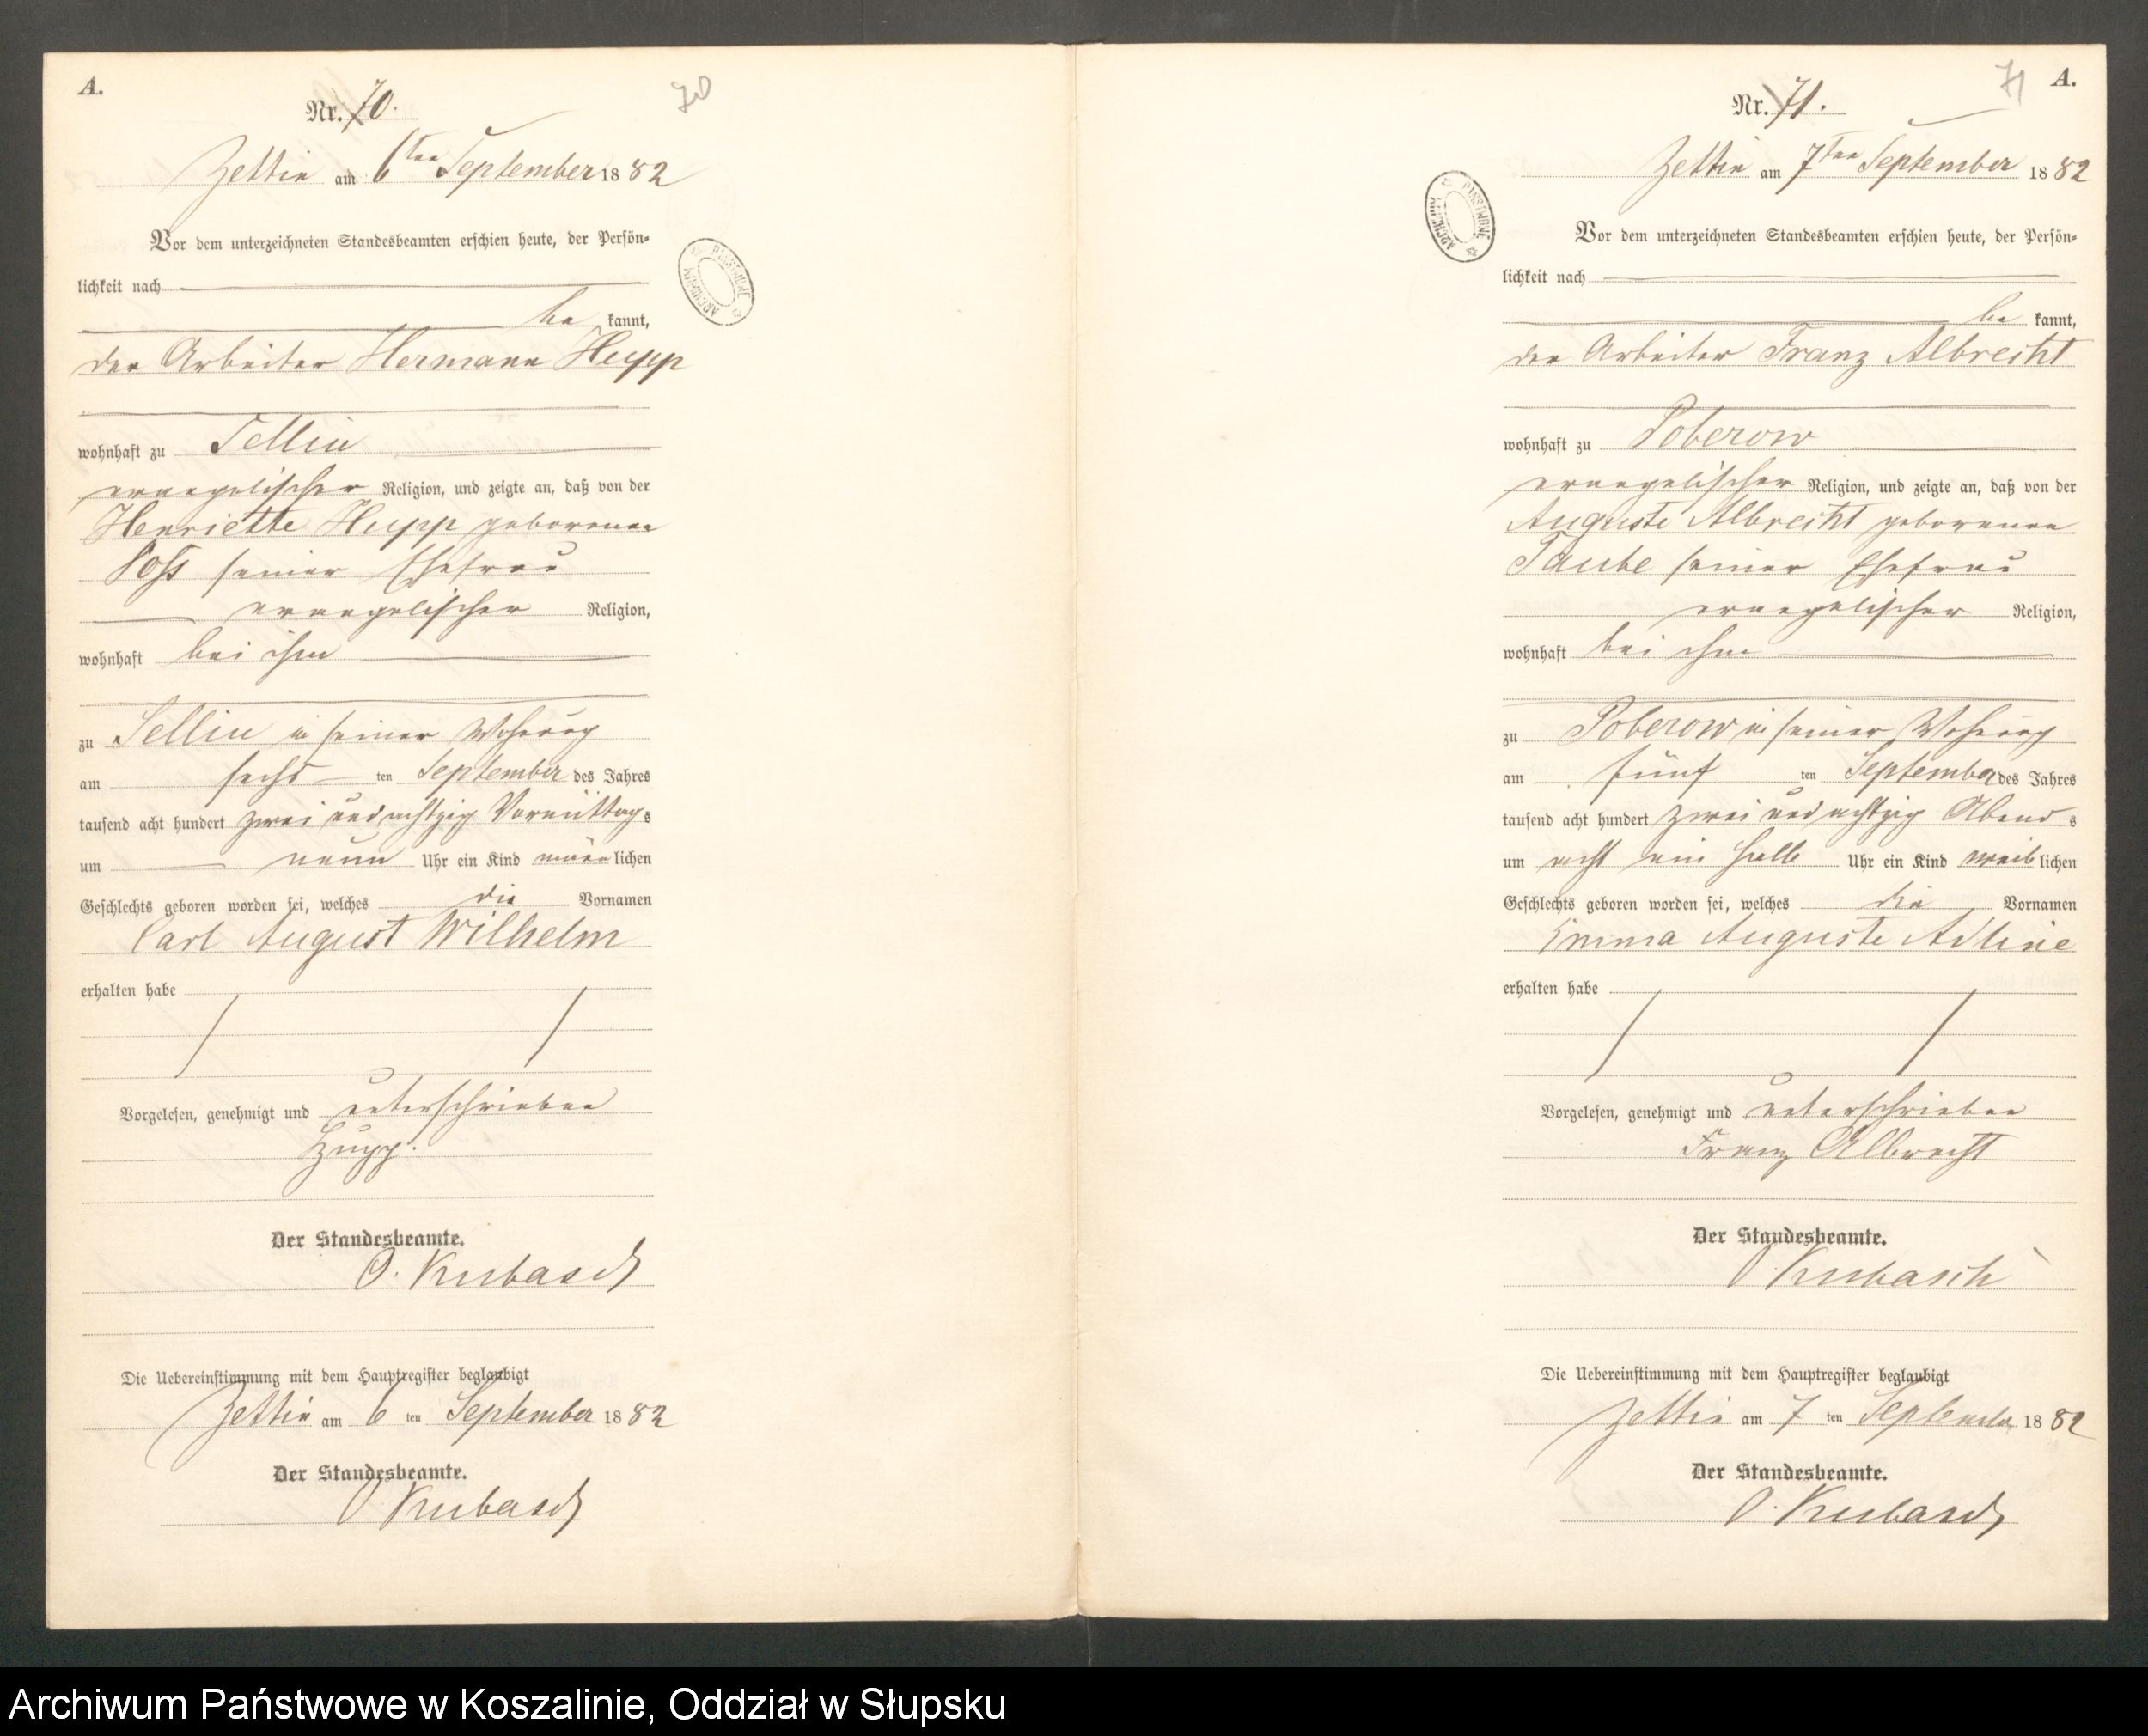 A.
Nr. 70.
70
Zettin am 6ten September 1882
Vor dem unterzeichneten Standesbeamten erschien heute, der Persön-
lichkeit nach
be kannt,
der Arbeiter Hermann Hupp
wohnhaft zu Sellin
evangelischer Religion, und zeigte an, daß von der
Henriette Hupp geborenen
Voss seiner Ehefrau
evangelischer Religion,
wohnhaft bei ihm
zu Sellin in seiner Wohnung
am sechs ten September des Jahres
tausend acht hundert zwei und achtzig Vormittags
um neun Uhr ein Kind männlichen
Geschlechts geboren worden sei, welches die Vornamen
Carl August Wilhelm
erhalten habe
Vorgelesen, genehmigt und unterschrieben
Hupp.
Der Standesbeamte.
O. Kubasch
Die Uebereinstimmung mit dem Hauptregister beglaubigt
Zettin am 6 ten September 1882
Der Standesbeamte.
O Kubasch
A.
71
Nr. 71.
Zettin am 7ten September 1882
ARCHIWUM PAŃSTWOWE
Vor dem unterzeichneten Standesbeamten erschien heute, der Persön-
lichkeit nach
be kannt,
der Arbeiter Franz Albrecht
wohnhaft zu Poberow
evangelischer Religion, und zeigte an, daß von der
Auguste Albrecht geborenen
Taube seiner Ehefrau
evangelischer Religion,
wohnhaft bei ihm
zu Poberow in seiner Wohnung
am fünf ten September des Jahres
tausend acht hundert zwei und achtzig Abend s
um acht ein halb Uhr ein Kind weib lichen
Geschlechts geboren worden sei, welches die Vornamen
Emma Auguste Adline
erhalten habe
Vorgelesen, genehmigt und unterschrieben
Franz Albrecht
Der Standesbeamte.
O Kubasch
Die Uebereinstimmung mit dem Hauptregister beglaubigt
Zettin am 7 ten September 1882
Der Standesbeamte.
O. Kubasch
Archiwum Państwowe w Koszalinie, Oddział w Słupsku